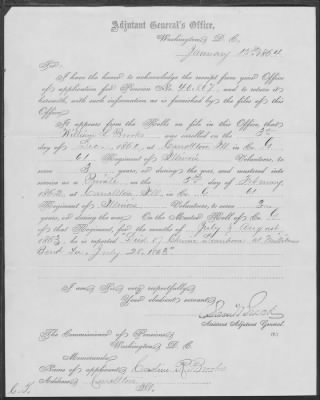 Adjutant General's Office,
Washington, D. C.
January 15th, 1864
Sir:
I have the honor to acknowledge the receipt from your Office
of application for Pension No. 40.667, and to return it
herewith, with such information as is furnished by the files of this
Office.
It appears from the Rolls on file in this Office, that
William L. Brooks was enrolled on the 3d
day of Dec., 1861, at Carrollton Ill in Co. G
61 Regiment of Illinois Volunteers, to
serve 3 years, or during the war, and mustered into
service as a Private on the 5th day of February
1862, at Carrollton Ill in Co. G 61
Regiment of Illinois Volunteers, to serve 3
years, or during the war. On the Muster Roll of Co. G
of that Regiment, for the months of July & August,
1863, he is reported "Died of Chronic Diarrhoea at
Bend La., July 20. 1863."
I am, Sir, very respectfully,
Your obedient servant,
Assistant Adjutant General.
The Commissioner of Pensions,
Washington, D. C.
Memoranda
Name of applicant, Caroline R. Brooks
Address, Carrollton
Ill.